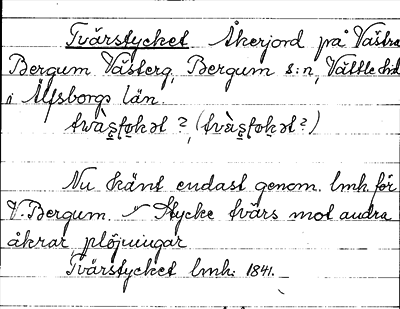 Tvärstycket Åkerjord på Västra
Bergum Västerg, Bergum s:n, Vättle hd
i Älfsborgs län.
tvàs̡tok̡ət ?, (tvàs̡tok̡ət ?)
Nu känt endast genom lmh. för
V. Bergum. – Stycke tvärs mot andra
åkrar plöjningar
Tvärstycket lmh: 1841.